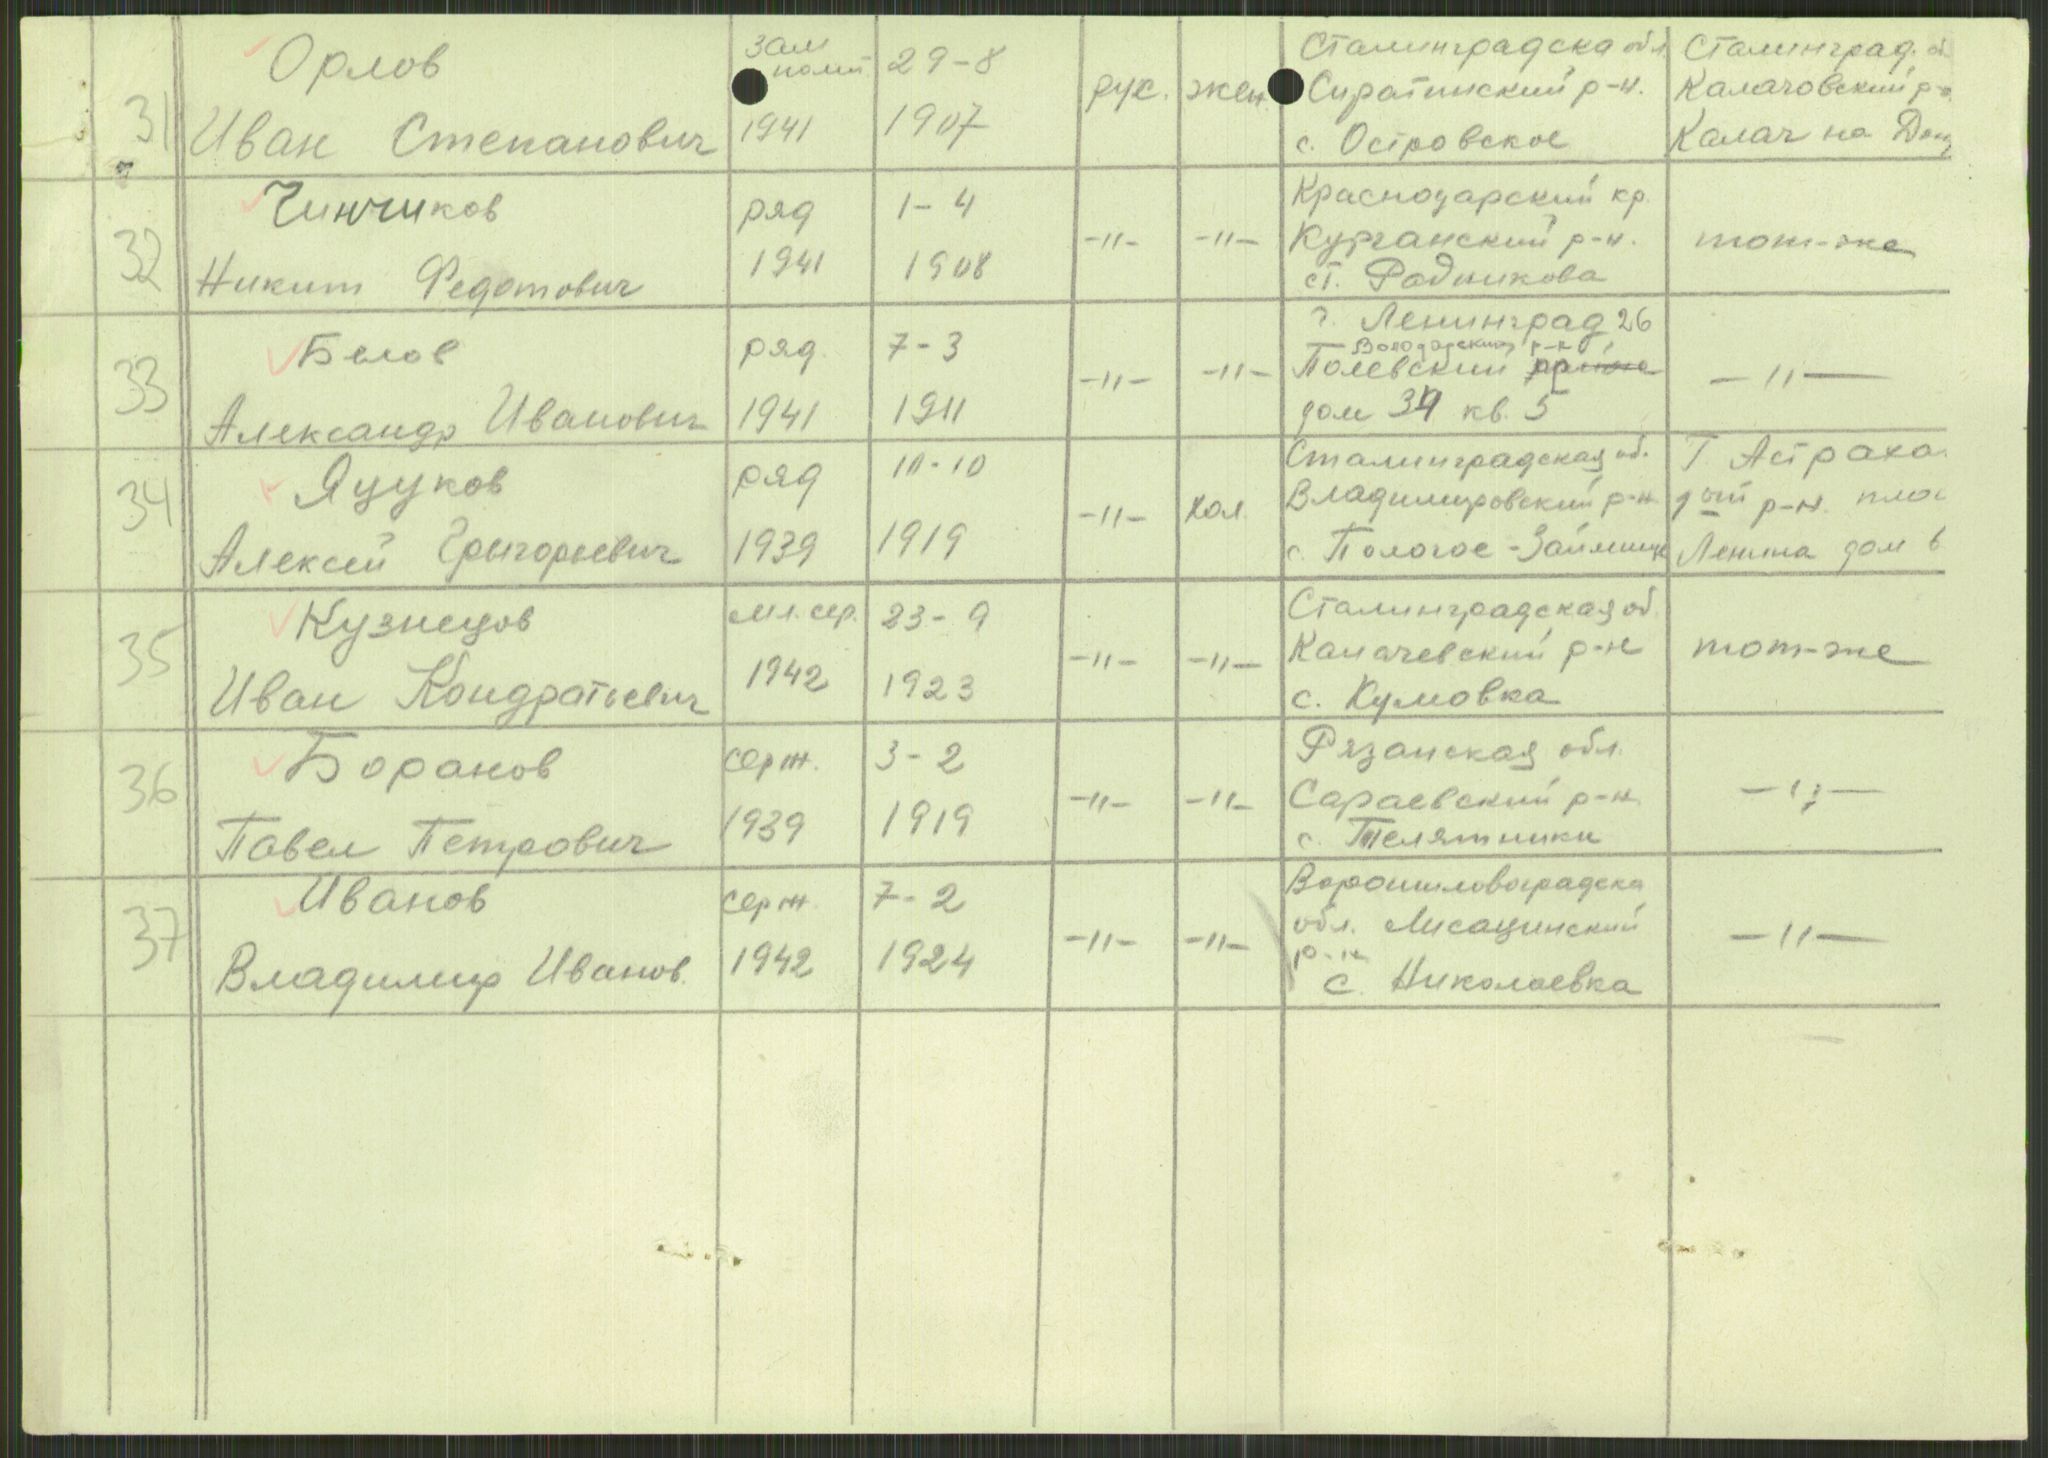 31 Орлов Иван Степанович
зам полит 1941
29-8 1907
рус. жен.
Сталинградска обл.
Сиратинский р-н.
с. Островское
Сталинград. об
Калачовский р-н
Калач на Дону
32 Чинчиков Никит Федотович
ряд 1941
1-4 1908
-"- -"-
Краснодарский кр.
Курганский р-н.
ст. Родникова
тот-же
33 Белов Александр Иванович
ряд. 1941
7-3 1911
-"- -"-
г. Ленинград 26
Володарский р-н
Полевский
дом 34 кв. 5
-"-
34 Яцуков Алексей Григорьевич
ряд 1939
10-10 1919
-"- хол.
Сталинградская об.
Владимировский р-н
с. Пологое-Займище
Г. Астраха
р-н. пло
Ленина дом 6
35 Кузнецов Иван Кондратьевич
мл. сер. 1942
23-9 1923
-"- -"-
Сталинградская об.
Калачевский р-н
с. Кумовка
тот-же
36 Боранов Павел Петрович
серж. 1939
3-2 1919
-"- -"-
Рязанская обл.
Сараевский р-н
с. Телятники
-"-
37 Иванов Владимир Иванов.
серж. 1942
7-2 1924
-"- -"-
Ворошиловоградска
обл. Лисацинский
р-н
с. Николаевка
-"-